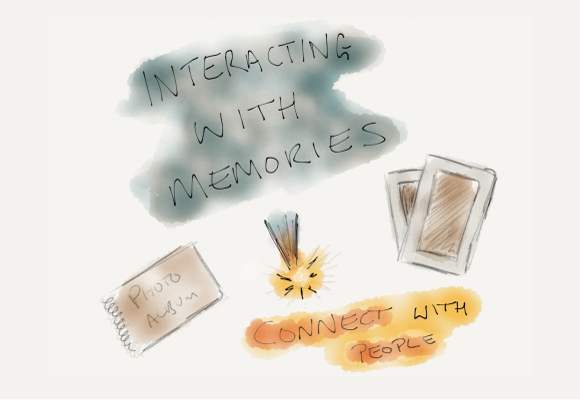 INTERACTING
WITH
MEMORIES
PHOTO
ALBUM
CONNECT WITH
PEOPLE